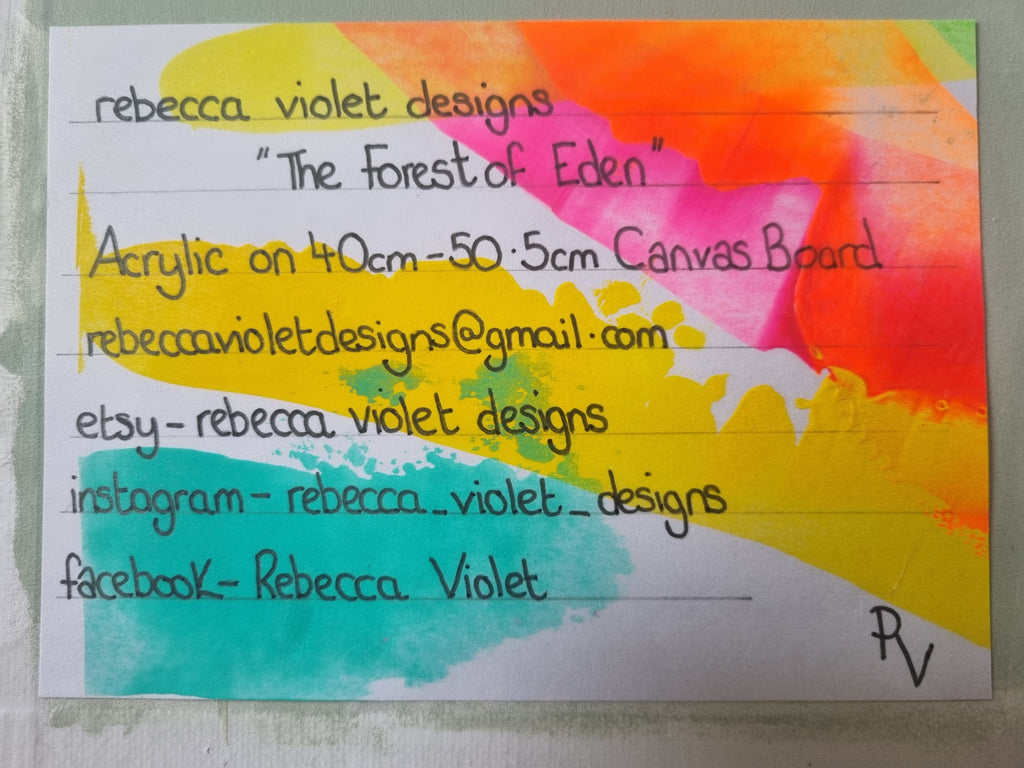 rebecca violet designs
"The Forest of Eden"
Acrylic on 40cm-50.5cm Canvas Board
rebeccavioletdesigns@gmail.com
etsy-rebecca violet designs
instagram-rebecca_violet_designs
facebook-Rebecca Violet
RV